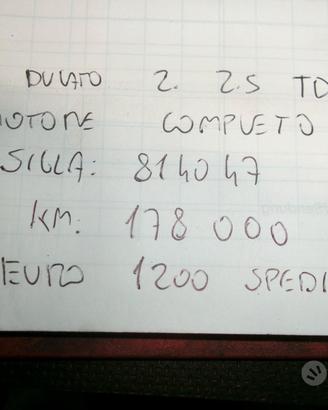 DUCATO 2. 2.5 TD
MOTORE COMPLETO
SIGLA: 814047
KM. 178 000
EURO 1200 SPEDI